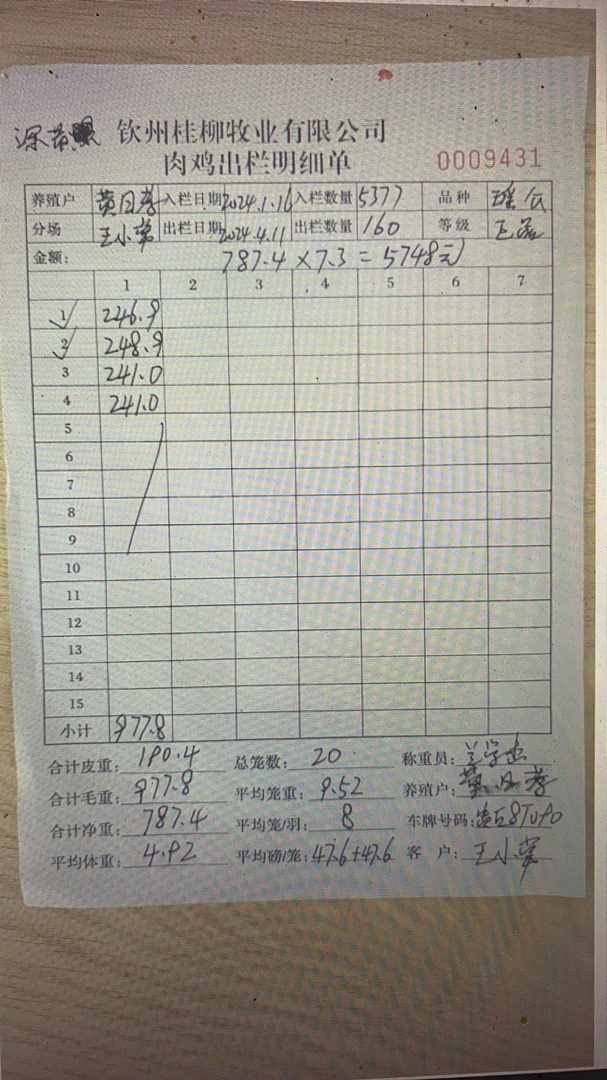 钦州桂柳牧业有限公司
肉鸡出栏明细单 0009431
养殖户 黄日孝 入栏日期 2024.1.16 入栏数量 5377 品种 瑶公
分场 王小荣 出栏日期 2024.4.11 出栏数量 160 等级 正品
金额: 787.4×7.3=5748元
1 2 3 4 5 6 7
1 246.9
2 248.9
3 241.0
4 241.0
5
6
7
8
9
10
11
12
13
14
15
小计 977.8
合计皮重: 190.4 总笼数: 20 称重员:
合计毛重: 977.8 平均笼重: 9.52 养殖户: 黄日孝
合计净重: 787.4 平均笼/羽: 8 车牌号码:
平均体重: 4.92 平均磅/笼: 47.6+47.6 客 户: 王小荣